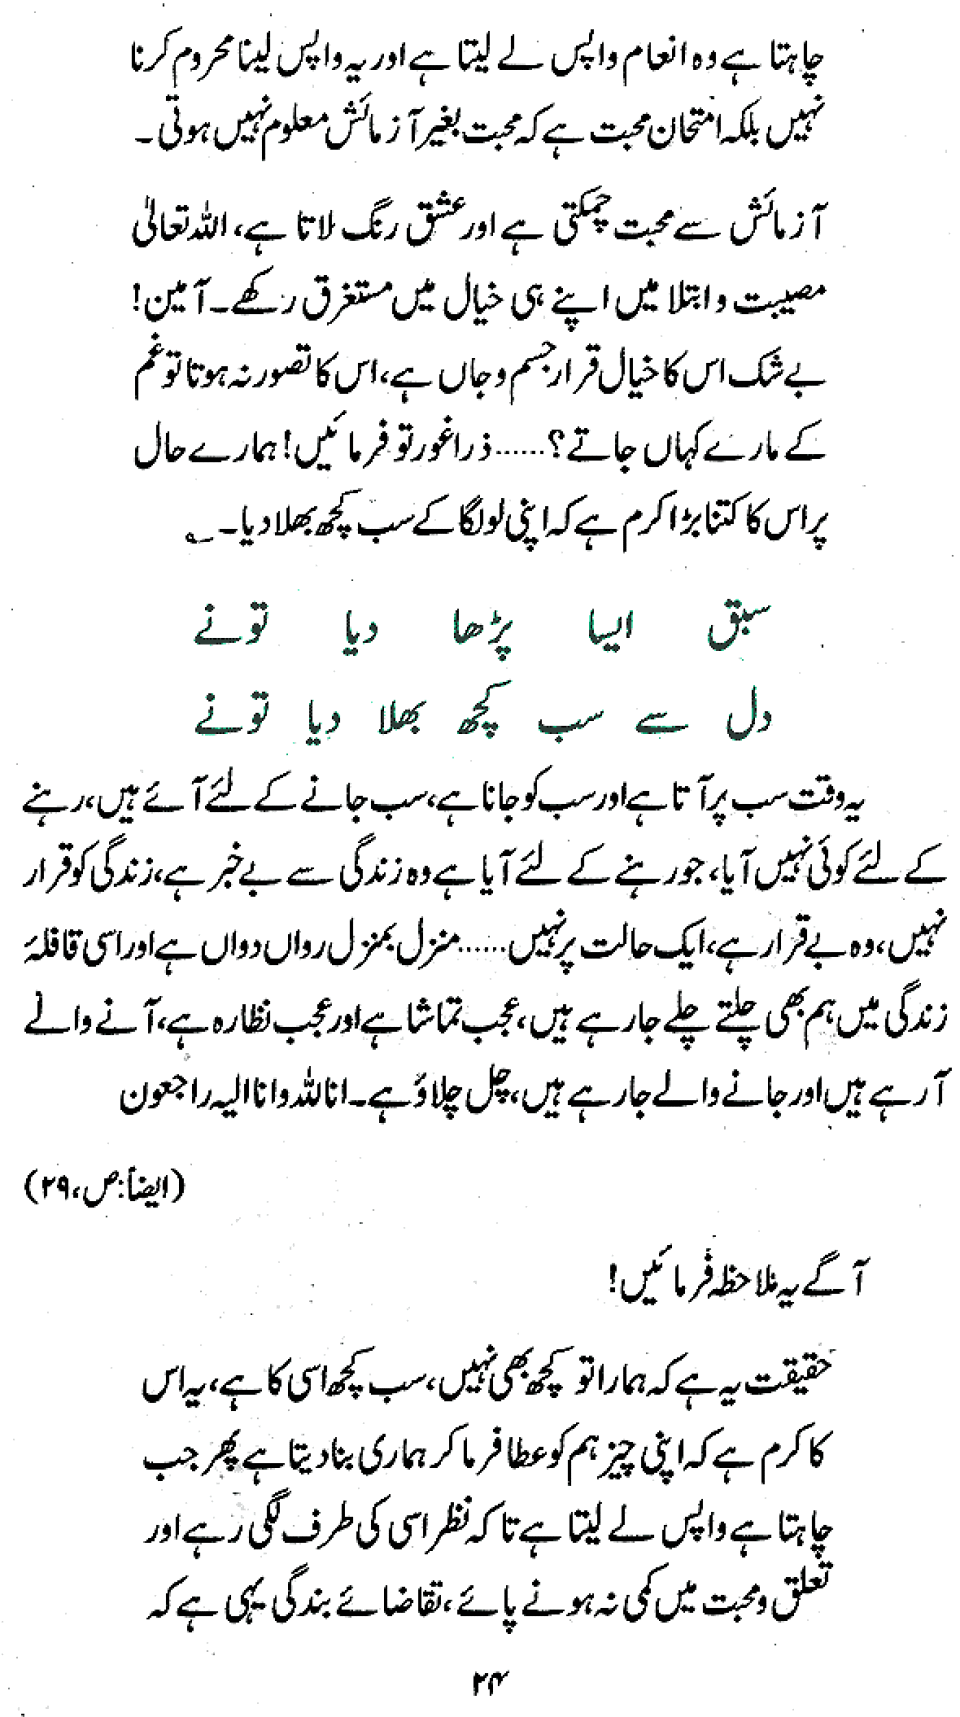 چاہتا ہے وہ انعام واپس لے لیتا ہے اور یہ واپس لینا محروم کرنا
نہیں بلکہ امتحان محبت ہے کہ محبت بغیر آزمائش معلوم نہیں ہوتی۔
آزمائش سے محبت چمکتی ہے اور عشق رنگ لاتا ہے، اللہ تعالیٰ
مصیبت و ابتلا میں اپنے ہی خیال میں مستغرق رکھے۔ آمین!
بے شک اس کا خیال قرار جسم و جاں ہے، اس کا تصور نہ ہوتا تو غم
کے مارے کہاں جاتے؟...... ذرا غور تو فرمائیں! ہمارے حال
پر اس کا کتنا بڑا کرم ہے کہ اپنی لو لگا کے سب کچھ بھلا دیا۔ ؎
سبق ایسا پڑھا دیا تو نے
دل سے سب کچھ بھلا دیا تو نے
یہ وقت سب پر آتا ہے اور سب کو جانا ہے، سب جانے کے لئے آئے ہیں، رہنے
کے لئے کوئی نہیں آیا، جو رہنے کے لئے آیا ہے وہ زندگی سے بے خبر ہے، زندگی کو قرار
نہیں، وہ بے قرار ہے، ایک حالت پر نہیں...... منزل بمنزل رواں دواں ہے اور اسی قافلۂ
زندگی میں ہم بھی چلتے چلے جارہے ہیں، عجب تماشا ہے اور عجب نظارہ ہے، آنے والے
آرہے ہیں اور جانے والے جارہے ہیں، چل چلاؤ ہے۔ انا للہ وانا الیہ راجعون
(ایضاً: ص، ۲۹)
آگے یہ ملاحظہ فرمائیں!
حقیقت یہ ہے کہ ہمارا تو کچھ بھی نہیں، سب کچھ اسی کا ہے، یہ اس
کا کرم ہے کہ اپنی چیز ہم کو عطا فرما کر ہماری بنا دیتا ہے پھر جب
چاہتا ہے واپس لے لیتا ہے تاکہ نظر اسی کی طرف لگی رہے اور
تعلق و محبت میں کمی نہ ہونے پائے، تقاضائے بندگی یہی ہے کہ
۲۴